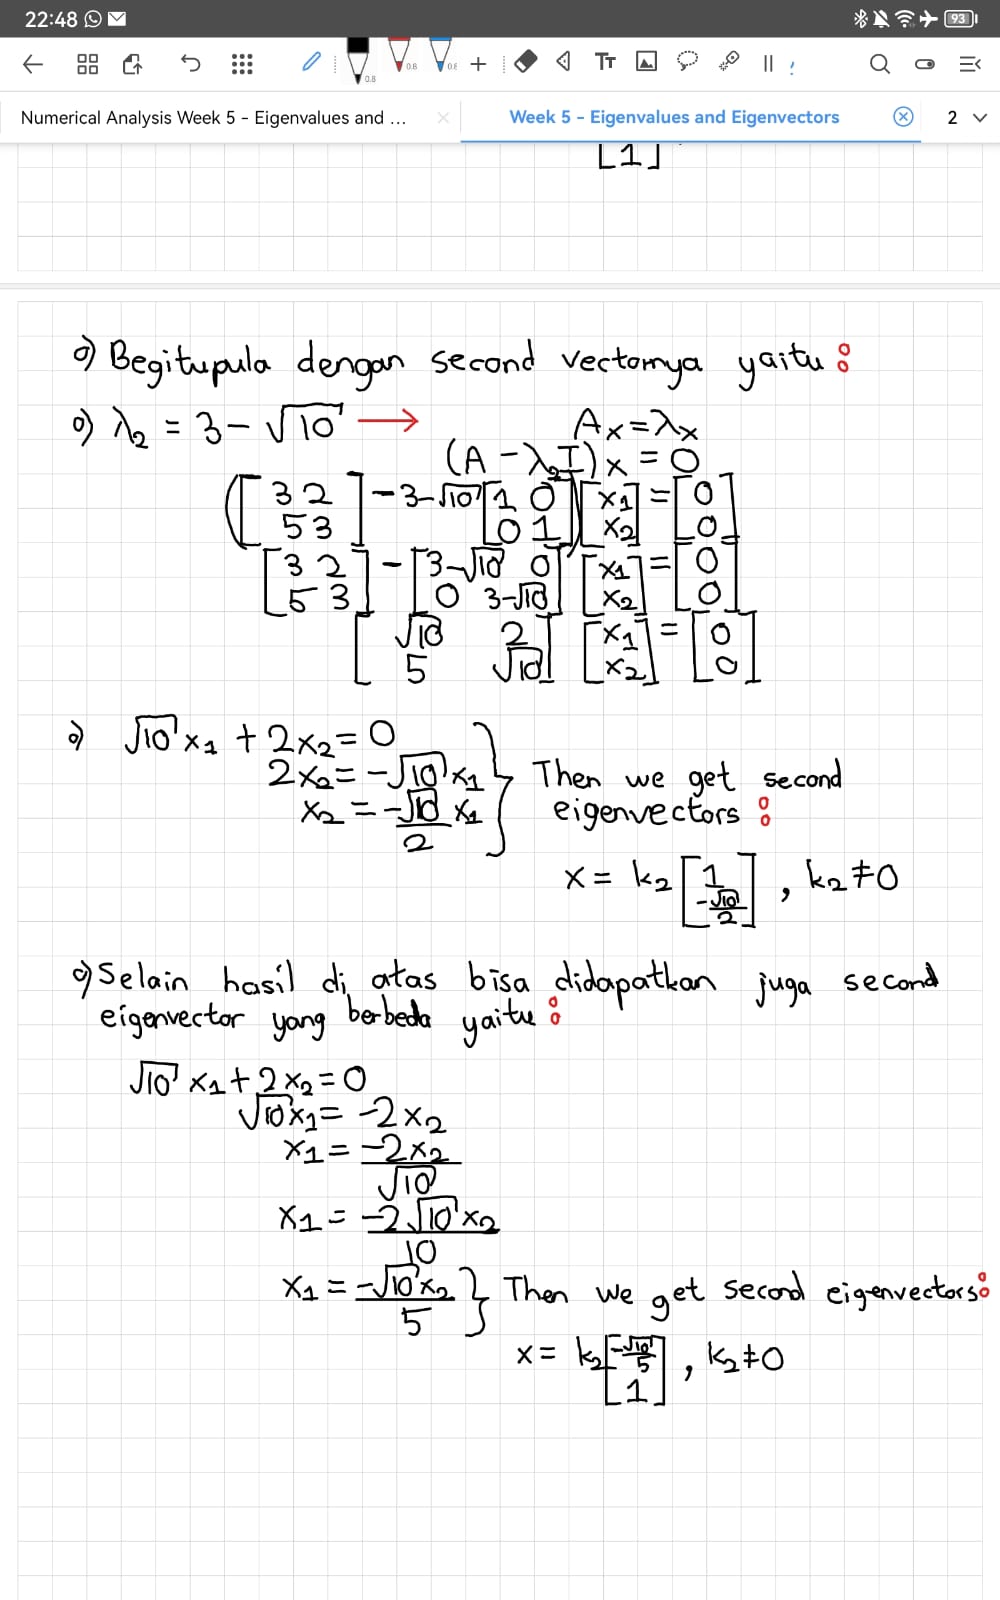 22:48 93
0.8 0.8 0.8
Numerical Analysis Week 5 - Eigenvalues and ... Week 5 - Eigenvalues and Eigenvectors 2
[1]
o) Begitupula dengan second vectornya yaitu :
o) λ₂ = 3-√10 → Ax=λx
(A-λ₂I)x = 0
([3 2; 5 3] - 3-√10 [1 0; 0 1]) [x₁; x₂] = [0; 0]
[3 2; 5 3] - [3-√10 0; 0 3-√10] [x₁; x₂] = [0; 0]
[√10 2; 5 √10] [x₁; x₂] = [0; 0]
o) √10 x₁ + 2x₂ = 0
2x₂ = -√10 x₁ } Then we get second
x₂ = -√10/2 x₁ eigenvectors :
x = k₂ [1; -√10/2] , k₂≠0
o) Selain hasil di atas bisa didapatkan juga second
eigenvector yang berbeda yaitu :
√10 x₁ + 2x₂ = 0
√10 x₁ = -2x₂
x₁ = -2x₂/√10
x₁ = -2√10 x₂/10
x₁ = -√10 x₂/5 } Then we get second eigenvectors:
x = k₂ [-√10/5; 1] , k₂≠0